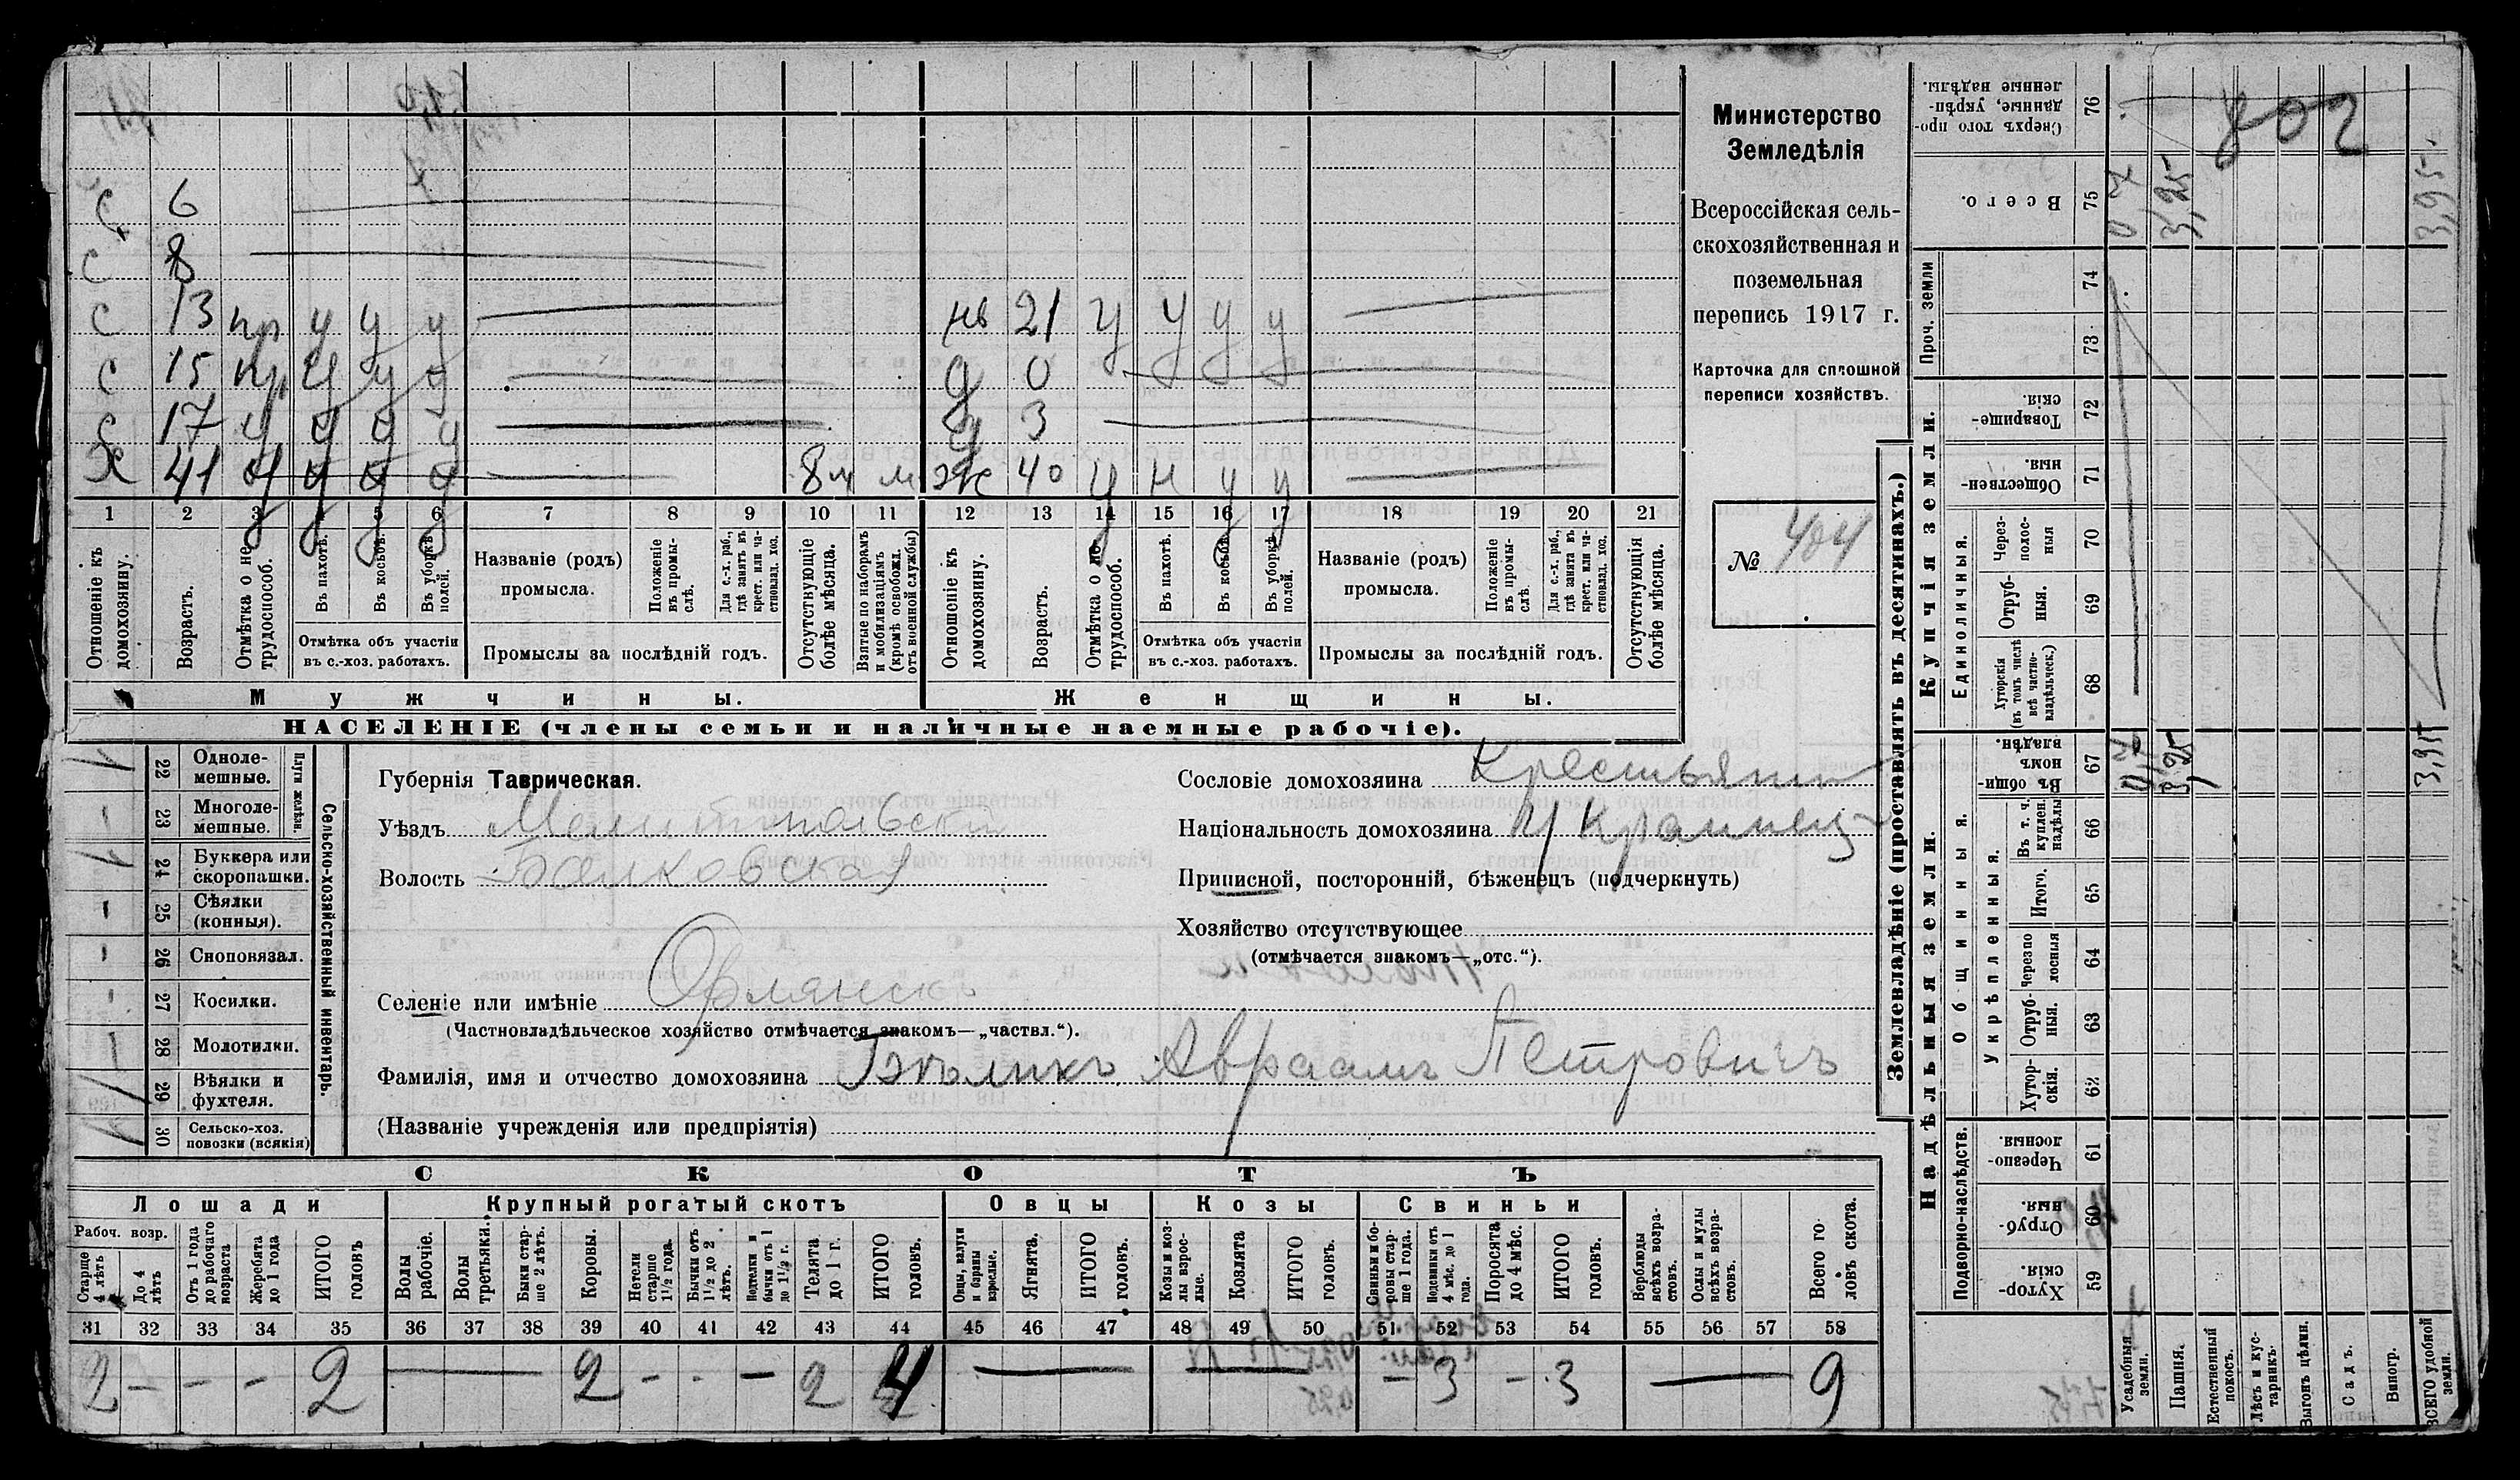 Министерство
Земледѣлія
Всероссійская сель-
скохозяйственная и
поземельная
перепись 1917 г.
Карточка для сплошной
переписи хозяйствъ.
№ 404
с 6
с 8
с 13 нр у у у
с 15 нр у у у
с 17 у у у у
х 41 у у у у 8 м м
нв 21 у у у у
д 0
д 3
ж 40 у н у у
1 2 3 4 5 6 7 8 9 10 11 12 13 14 15 16 17 18 19 20 21
Отношеніе къ домохозяину.
Возрастъ.
Отмѣтка о не трудоспособ.
Въ пахотѣ.
Въ косьбѣ.
Въ уборкѣ полей.
Отмѣтка объ участіи
въ с.-хоз. работахъ.
Названіе (родъ)
промысла.
Положеніе въ промы-слѣ.
Для с.-х. раб., гдѣ занятъ въ крест. или ча-стновлад. хоз.
Промыслы за послѣдній годъ.
Отсутствующіе болѣе мѣсяца.
Взятые по наборамъ и мобилизаціямъ (кромѣ освобожд. отъ военной службы)
Отношеніе къ домохозяину.
Возрастъ.
Отмѣтка о не трудоспособ.
Въ пахотѣ.
Въ косьбѣ.
Въ уборкѣ полей.
Отмѣтка объ участіи
въ с.-хоз. работахъ.
Названіе (родъ)
промысла.
Положеніе въ промы-слѣ.
Для с.-х. раб., гдѣ занята въ крест. или ча-стновлад. хоз.
Промыслы за послѣдній годъ.
Отсутствующія болѣе мѣсяца.
Мужчины.
Женщины.
НАСЕЛЕНІЕ (члены семьи и наличные наемные рабочіе).
Сельско-хозяйственный инвентарь.
Плуги желѣзн.
22 Одноле-мешные. 1
23 Многоле-мешные. -
24 Буккера или скоропашки. 1
25 Сѣялки (конныя). -
26 Сноповязал. -
27 Косилки. -
28 Молотилки. -
29 Вѣялки и фухтеля.
30 Сельско-хоз. повозки (всякія)
Губернія Таврическая.
Уѣздъ Мелитопольскій
Волость Балковская
Селеніе или имѣніе Орлянскъ
(Частновладѣльческое хозяйство отмѣчается знакомъ—„частвл.“).
Сословіе домохозяина Крестьянин
Національность домохозяина Украинец
Приписной, посторонній, бѣженецъ (подчеркнуть)
Хозяйство отсутствующее
(отмѣчается знакомъ—„отс.“).
Фамилія, имя и отчество домохозяина Бѣликъ Авраамъ Петровичъ
(Названіе учрежденія или предпріятія)
СКОТЪ
Лошади
Крупный рогатый скотъ
Овцы
Козы
Свиньи
Рабоч. возр.
Старше 4 лѣтъ
До 4 лѣтъ
Отъ 1 года до рабочаго возраста
Жеребята до 1 года
ИТОГО головъ
Волы рабочіе.
Волы третьяки.
Быки стар-ше 2 лѣтъ.
Коровы.
Нетели старше 1½ года.
Бычки отъ 1½ до 2 лѣтъ.
Нетелки и бычки отъ 1 до 1½ г.
Телята до 1 г.
ИТОГО головъ.
Овцы, валухи и бараны взрослые.
Ягнята.
ИТОГО головъ.
Козы и коз-лы взрос-лые.
Козлята
ИТОГО головъ.
Свиньи и бо-ровы стар-ше 1 года.
Подсвинки отъ 4 мѣс. до 1 года.
Поросята до 4 мѣс.
ИТОГО головъ.
Верблюды всѣхъ возра-стовъ.
Ослы и мулы всѣхъ возра-стовъ.
Всего го-ловъ скота.
31 32 33 34 35 36 37 38 39 40 41 42 43 44 45 46 47 48 49 50 51 52 53 54 55 56 57 58
2 - - - 2 — 2 - - - 2 4 — — - 3 - 3 — 9
Землевладѣніе (проставлять въ десятинахъ.)
Купчія земли.
Надѣльныя земли.
Сверхъ того про-данные, укрѣп-ленные надѣлы. 76
Всего. 75
Проч. земли
74
73
Товарище-скія. 72
Обществен-ныя. 71
Единоличныя.
Через-полос-ныя 70
Отруб-ныя. 69
Хуторскія (въ томъ числѣ всѣ частно-владѣльческ.) 68
Общинныя.
Въ общи номъ владѣн. 67
Укрѣпленныя.
Въ т. ч. куплен. надѣлы 66
Итого. 65
Черезпо лосныя 64
Отруб-ныя. 63
Хутор-скія. 62
Подворно-наслѣдств.
Черезпо-лосныя. 61
Отруб-ныя. 60
Хутор-скія. 59
Усадебныя земли.
Пашня.
Естественный покосъ.
Лѣсъ и кус-тарникъ.
Выгонъ цѣлин.
Садъ.
Виногр.
ВСЕГО удобной земли.
802
3,25
3,95
3,25
3,95